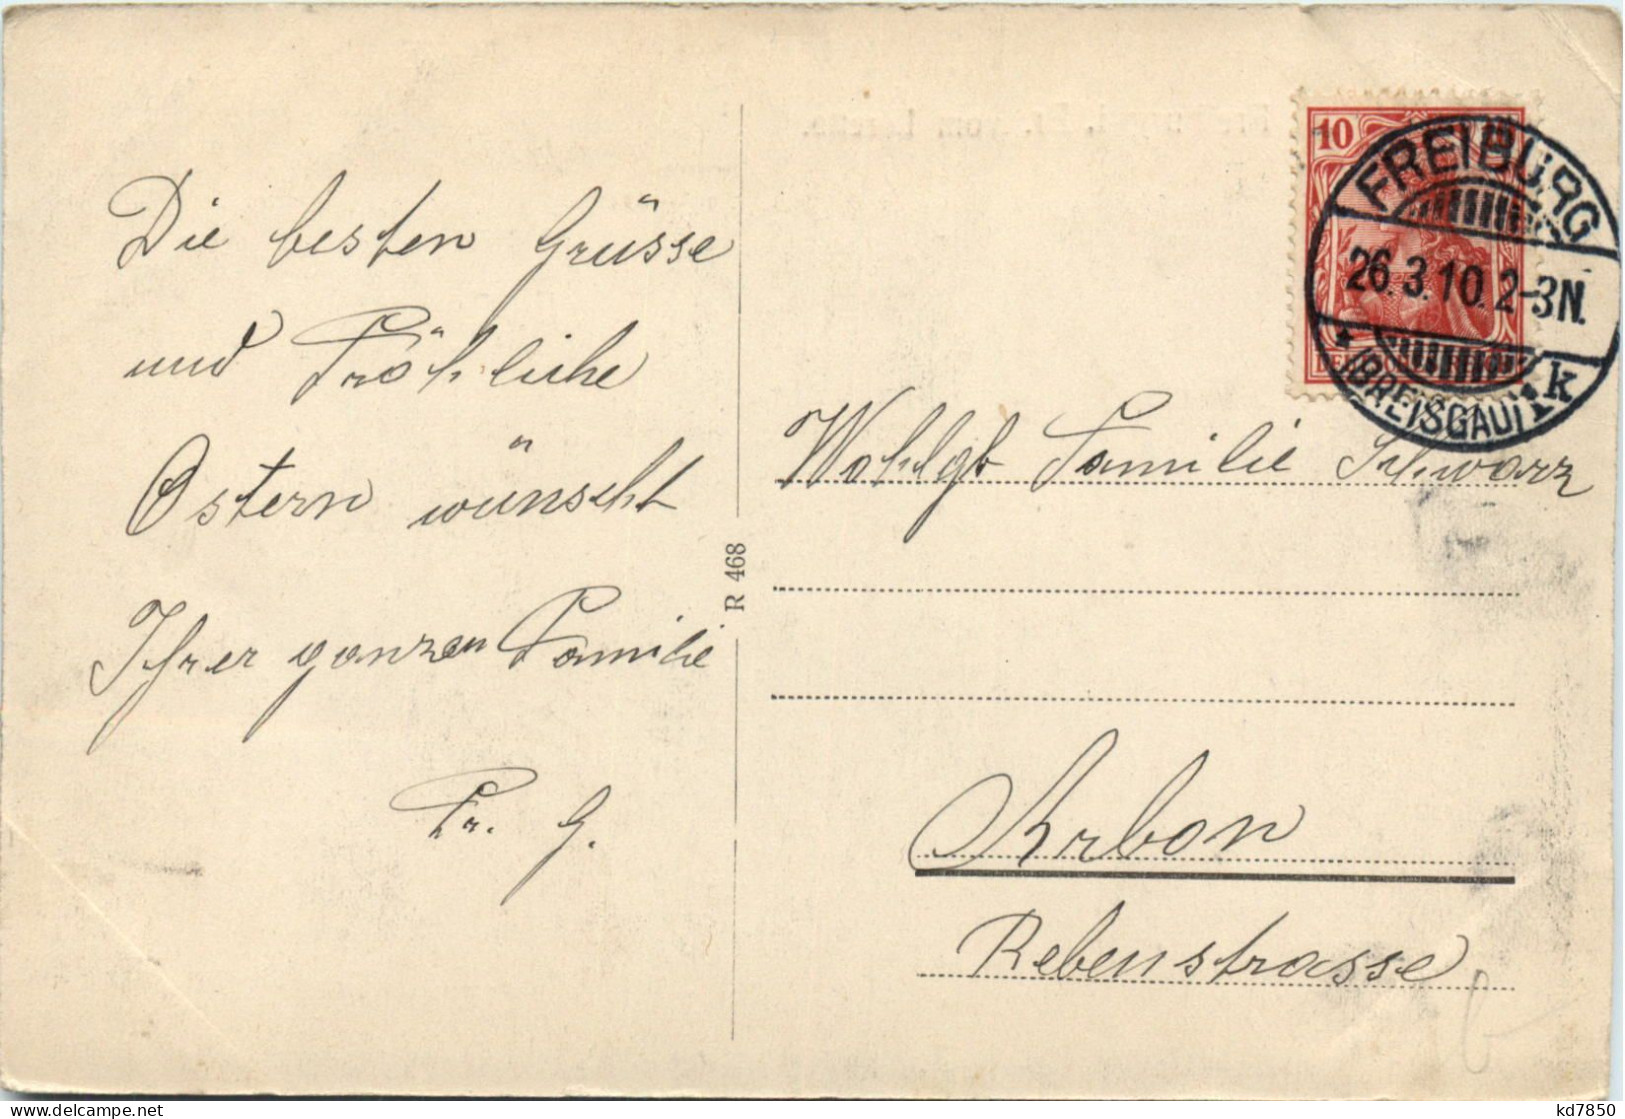 Die besten Grüsse
und Fröhliche
Ostern wünscht
Ihrer ganzen Familie
Fr. G.
R 468
10
FREIBURG
26.3.10.2-3N.
* (BREISGAU) * k
Wohlgb Familie Schwarz
Arbon
Rebenstrasse
kd7850